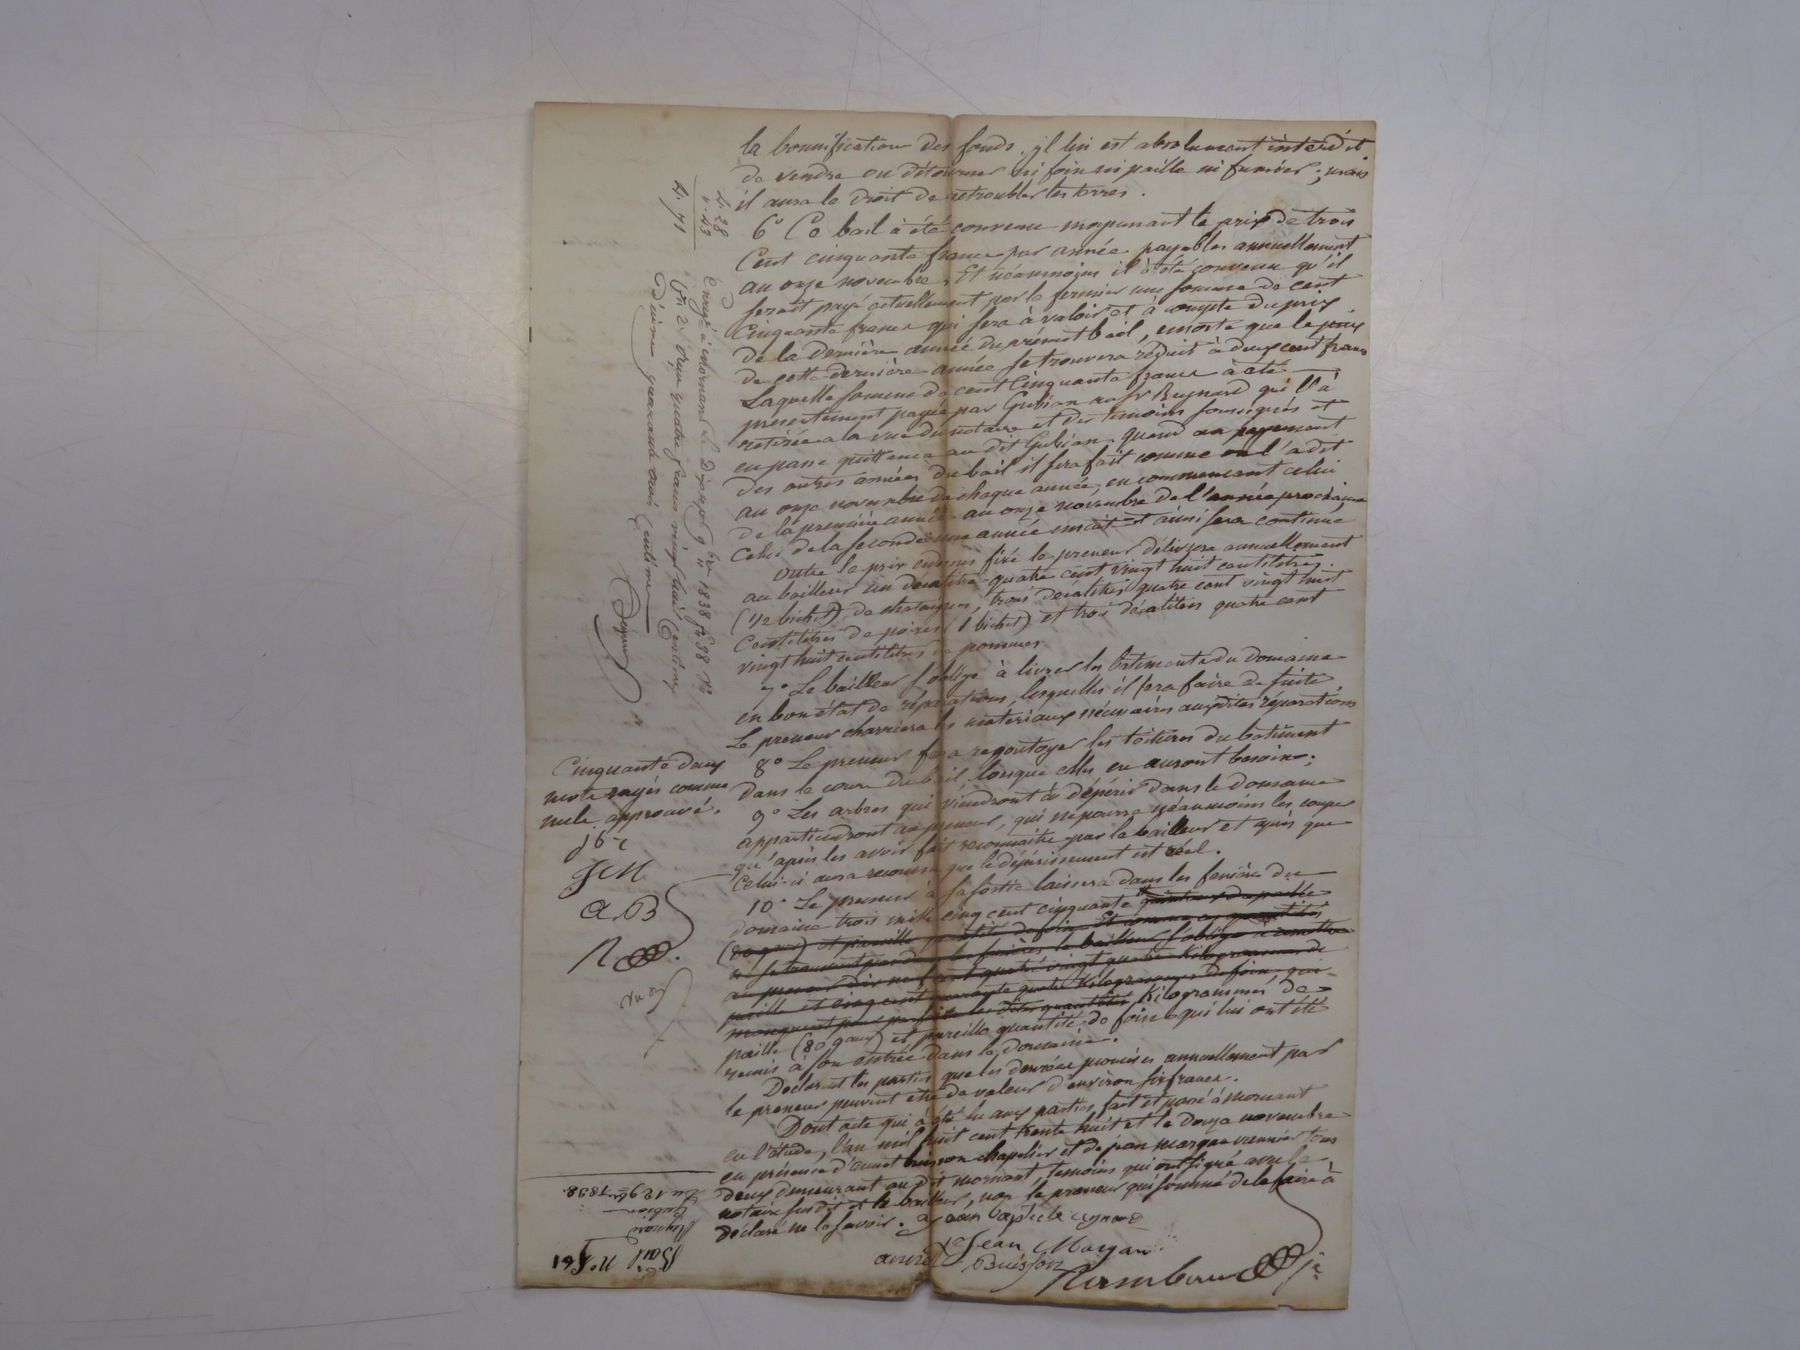 la bonnification des fonds, il lui est absolument interdit
de vendre ou détourner ni foin ni paille ni fumier ; mais
il aura le droit de retroubler les terres.
6° Ce bail à été convenu moyennant le prix de trois
Cent cinquante francs par année payables annuellement
au onze novembre. Et néanmoins il à été convenu qu'il
serait payé actuellement par le fermier une somme de cent
Cinquante francs qui sera à valoir et à compte du prix
de la dernière année du présent bail, ensorte que le prix
de cette dernière année se trouvera réduit à deux cent francs
Laquelle somme de cent cinquante francs à été
présentement payée par Gubian au Sr Reynard qui l'a
retirée a la vue du notaire et des témoins soussignés et
en passe quittance au dit Gubian. quand au payement
des autres années du bail il sera fait comme on l'a dit
au onze novembre de chaque année, en commencant celui
de la première année au onze novembre de l'année prochaine
Celui de la seconde une année ensuite et ainsi sera continué
Outre le prix cidessus fixé le preneur délivrera annuellement
au bailleur un decalitre quatre cent vingt huit centilitres
(1/2 bichet) de chataignes, trois decalitres quatre cent vingt huit
Centilitres de poires (1 bichet) et trois décalitres quatre cent
vingt huit centilitres de pommes
7° Le bailleur s'oblige à livrer les bâtiments du Domaine
en bon état de réparations, lesquelles il fera faire de suite
Le preneur charriera les matériaux nécessaires auxdites réparations
8° Le preneur fera regoutoyer les toitures du batiment
dans le cours du bail lorsque elles en auront besoin ;
9° Les arbres qui viendront à dépérir dans le domaine
appartiendront au preneur, qui ne pourra néanmoins les couper
qu'après les avoir fait reconnaitre par le bailleur et après que
Celui-ci aura reconnu que le dépérissement est réel.
10° Le preneur à sa sortie laissera dans les fenières du
domaine trois mille cinq cent cinquante quintaux de paille
(80 qaux) et pareille quantité de foin. Et comme ces quantités
ne se trouvent pas dans les fenières le bailleur s'oblige à remettre
au preneur dix neuf cent quatre vingt quatre kilogrammes de
paille et cinq cent quarante quatre kilogrammes de foin, qui
manquent pour parfaire les dites quantités Kilogrammes de
paille (80 qaux) et pareille quantité de foin qui lui ont été
remis à son entrée dans le domaine.
Déclarent les parties que les denrées promises annuellement par
le preneur peuvent etre de valeur d'environ six francs.
Dont acte qui à été lu aux parties, fait et passé à Mornant
en l'étude, l'an mil huit cent trente huit et le douze novembre
en présence d'annet buisson chapelier et de jean margan vannier tous
deux demeurant au dit mornant témoins qui ont signé avec le
notaire susdit et le bailleur, non le preneur qui sommé de le faire à
déclaré ne le savoir.
jean baptiste reynard
Jean Margan
annet Buisson
4. 28
". 43
4. 71
Enregé à Mornant le Douze 9bre 1838 fo 98
quatre francs vingt huit Centimes
Décime quarante trois Centimes
Cinquante deux
mots rayés comme
nuls approuvé.
J b r
J M
a. B
Bail No 561
Reynard
Gubian
Du 12 9bre 1838.